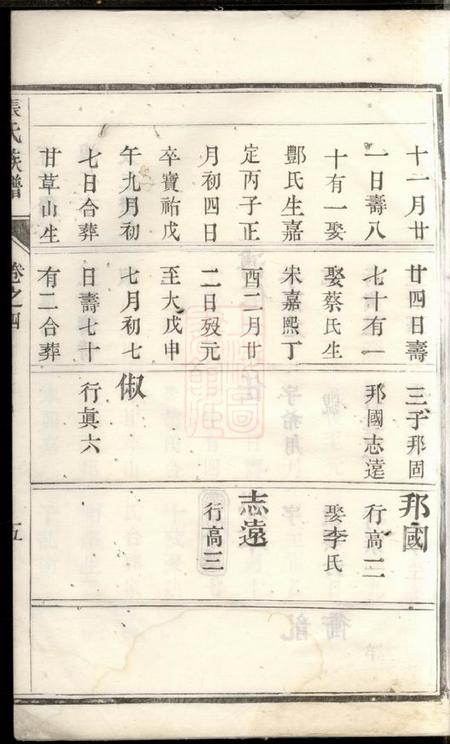 十一月廿
一日壽八
十有一娶
酆氏生嘉
定丙子正
月初四日
卒寶祐戊
午九月初
七日合葬
甘草山生
廿四日壽
七十有一
娶蔡氏生
宋嘉熙丁
酉二月廿
二日歿元
至大戊申
七月初七
日壽七十
有二合葬
三子邦固
邦國志遠
俶
行眞六
邦國
行高二
娶李氏
志遠
行高三
張氏族譜
卷之四
五